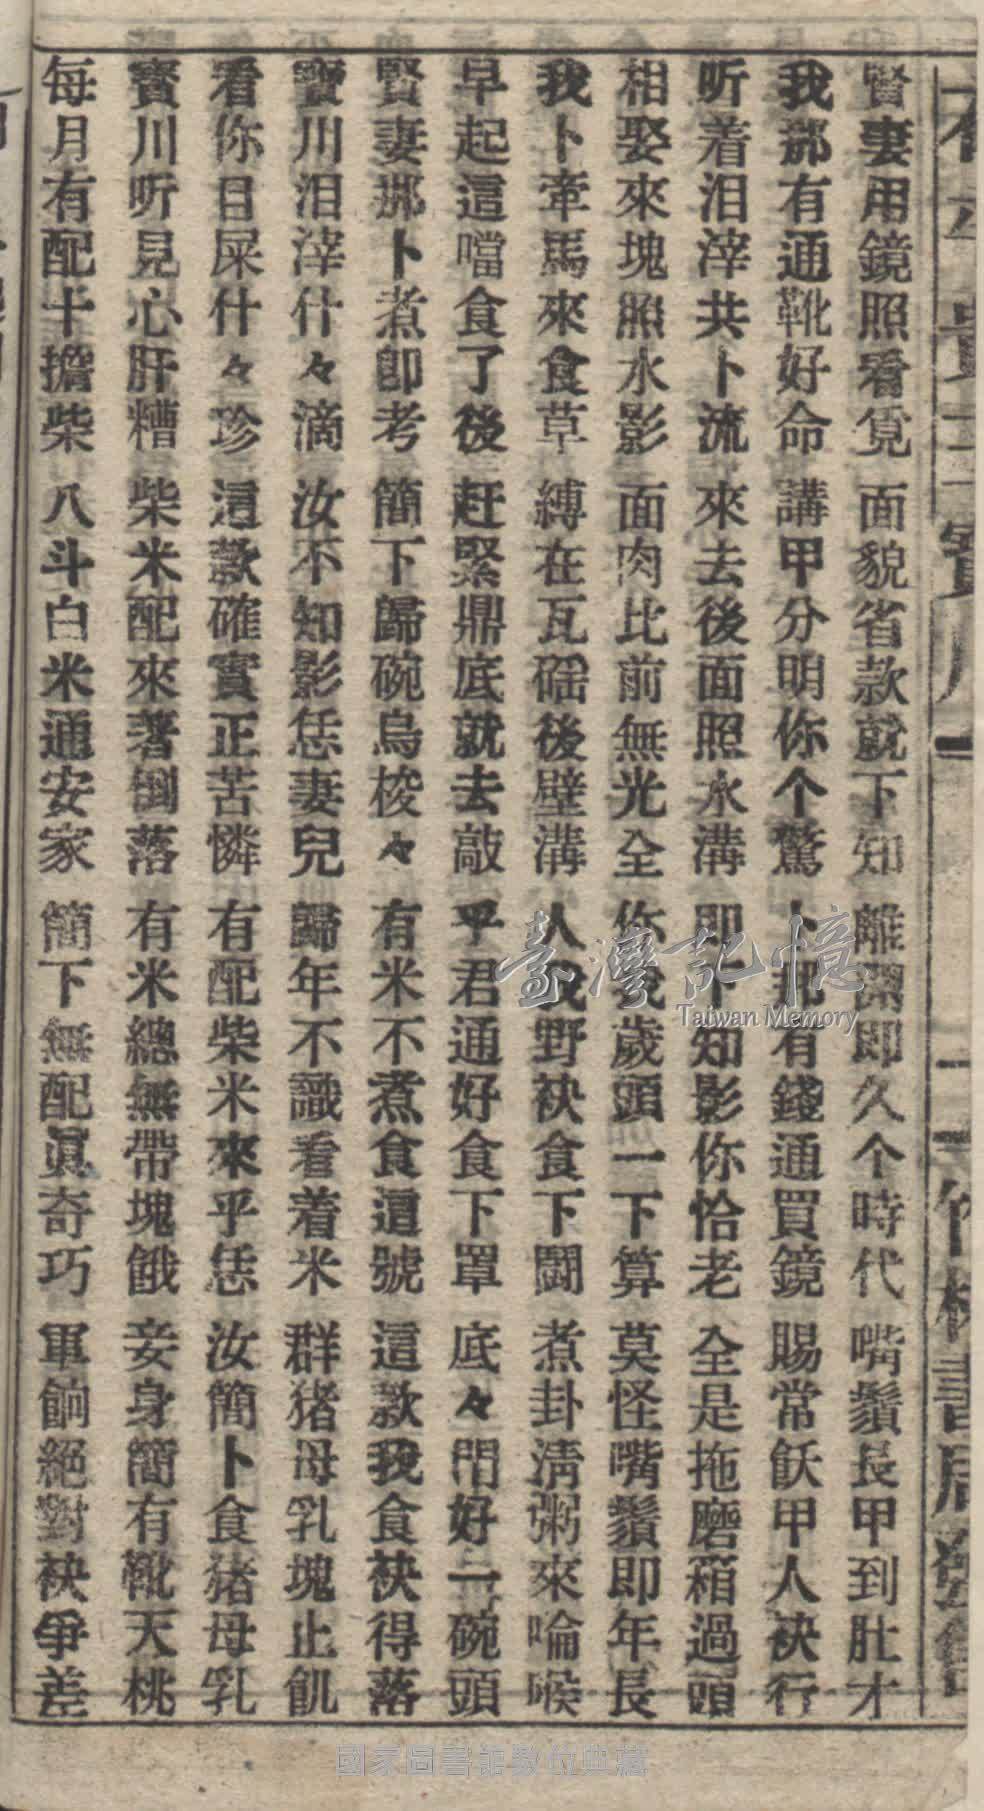 賢妻用鏡照看覓　面貌省款就下知　離開即久个時代　嘴鬚長甲到肚才
我那有通靴好命　講甲分明你个驚　卜那有錢通買鏡　賜常飫甲人袂行
听着泪滓共卜流　來去後面照水溝　即下知影你恰老　全是拖磨箱過頭
相娶來塊照水影　面肉比前無光全　你我歲頭一下算　莫怪嘴鬚即年長
我卜牽馬來食草　縛在瓦磘後壁溝　人我野袂食下鬪　煮卦清粥來喻喉
早起這噹食了後　赶緊鼎底就去敲　乎君通好食下罩　底々閗好二碗頭
賢妻那卜煮即考　簡下歸碗烏梭々　有米不煮食這號　這款我食袂得落
寶川泪滓什々滴　汝不知影恁妻兒　歸年不識看着米　群猪母乳塊止飢
看你日屎什々珍　這款確實正苦憐　有配柴米來乎恁　汝簡卜食猪母乳
寶川听見心肝糟　柴米配來著倒落　有米總無帶塊餓　妾身簡有靴天桃
每月有配十擔柴　八斗白米通安家　簡下無配眞奇巧　軍餉絕對袂爭差
臺灣記憶
Taiwan Memory
國家圖書館數位典藏